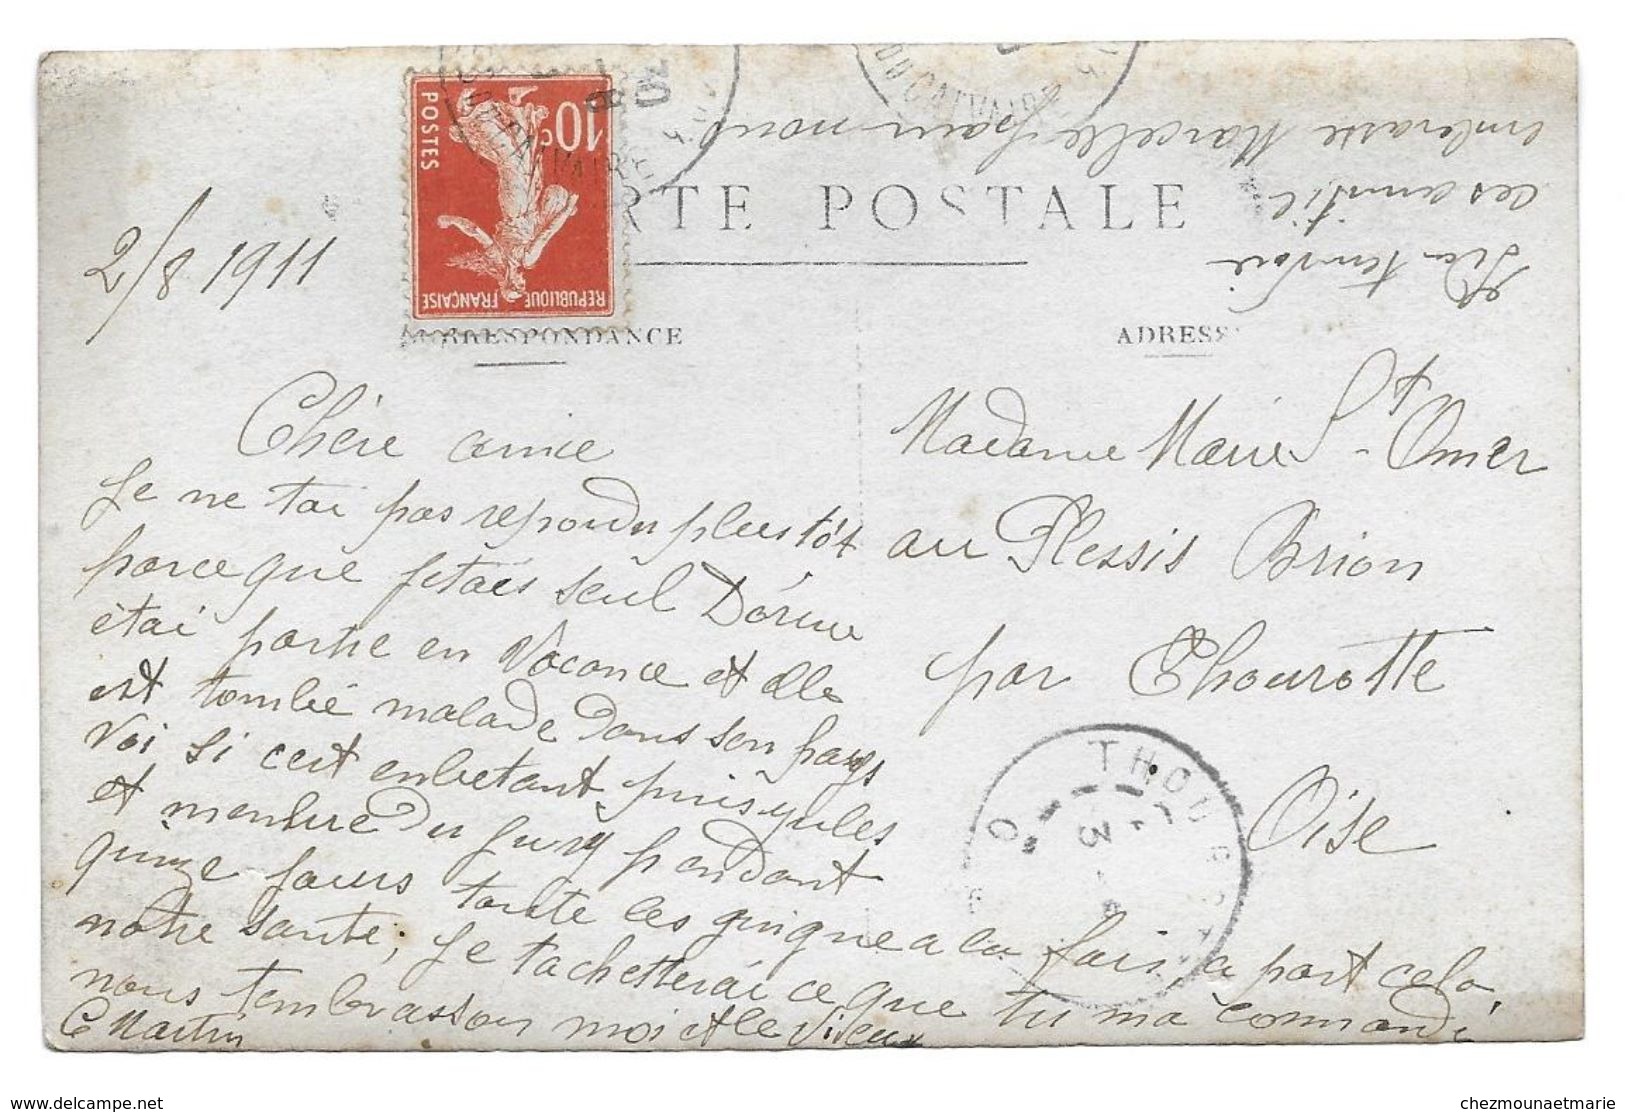 CARTE POSTALE
CORRESPONDANCE
ADRESSE
10c
POSTES
REPUBLIQUE FRANÇAISE
2/8 1911
Chère amie
Je ne tai pas repondu plustôt
parce que jetais seul
étai partie en Vacance et elle
est tombé malade dans son pays
Voi si cest enbetant puis
et membre du jury pendant
quinze jours toute les guigne a la fois, a part cela,
notre santé; je tachetterai ce que tu ma commandé
nous tembrasson moi et le Vieux
C Martin
Madame Marie St-Omer
au Plessis Brion
par Thourotte
Oise
THOUROTTE
3
ces amitié
embrasse Marcelle pour nous
delcampe.net
chezmounaetmarie